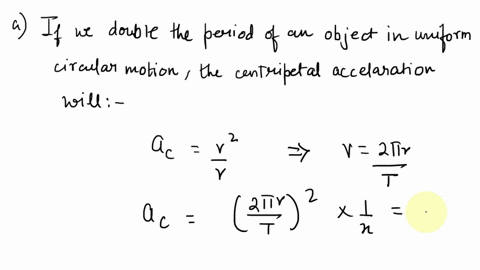 a) If we double the period of an object in uniform
circular motion, the centripetal accelaration
will:-
a_c = v²/r ⇒ v = 2πr/T
a_c = (2πr/T)² × 1/r =